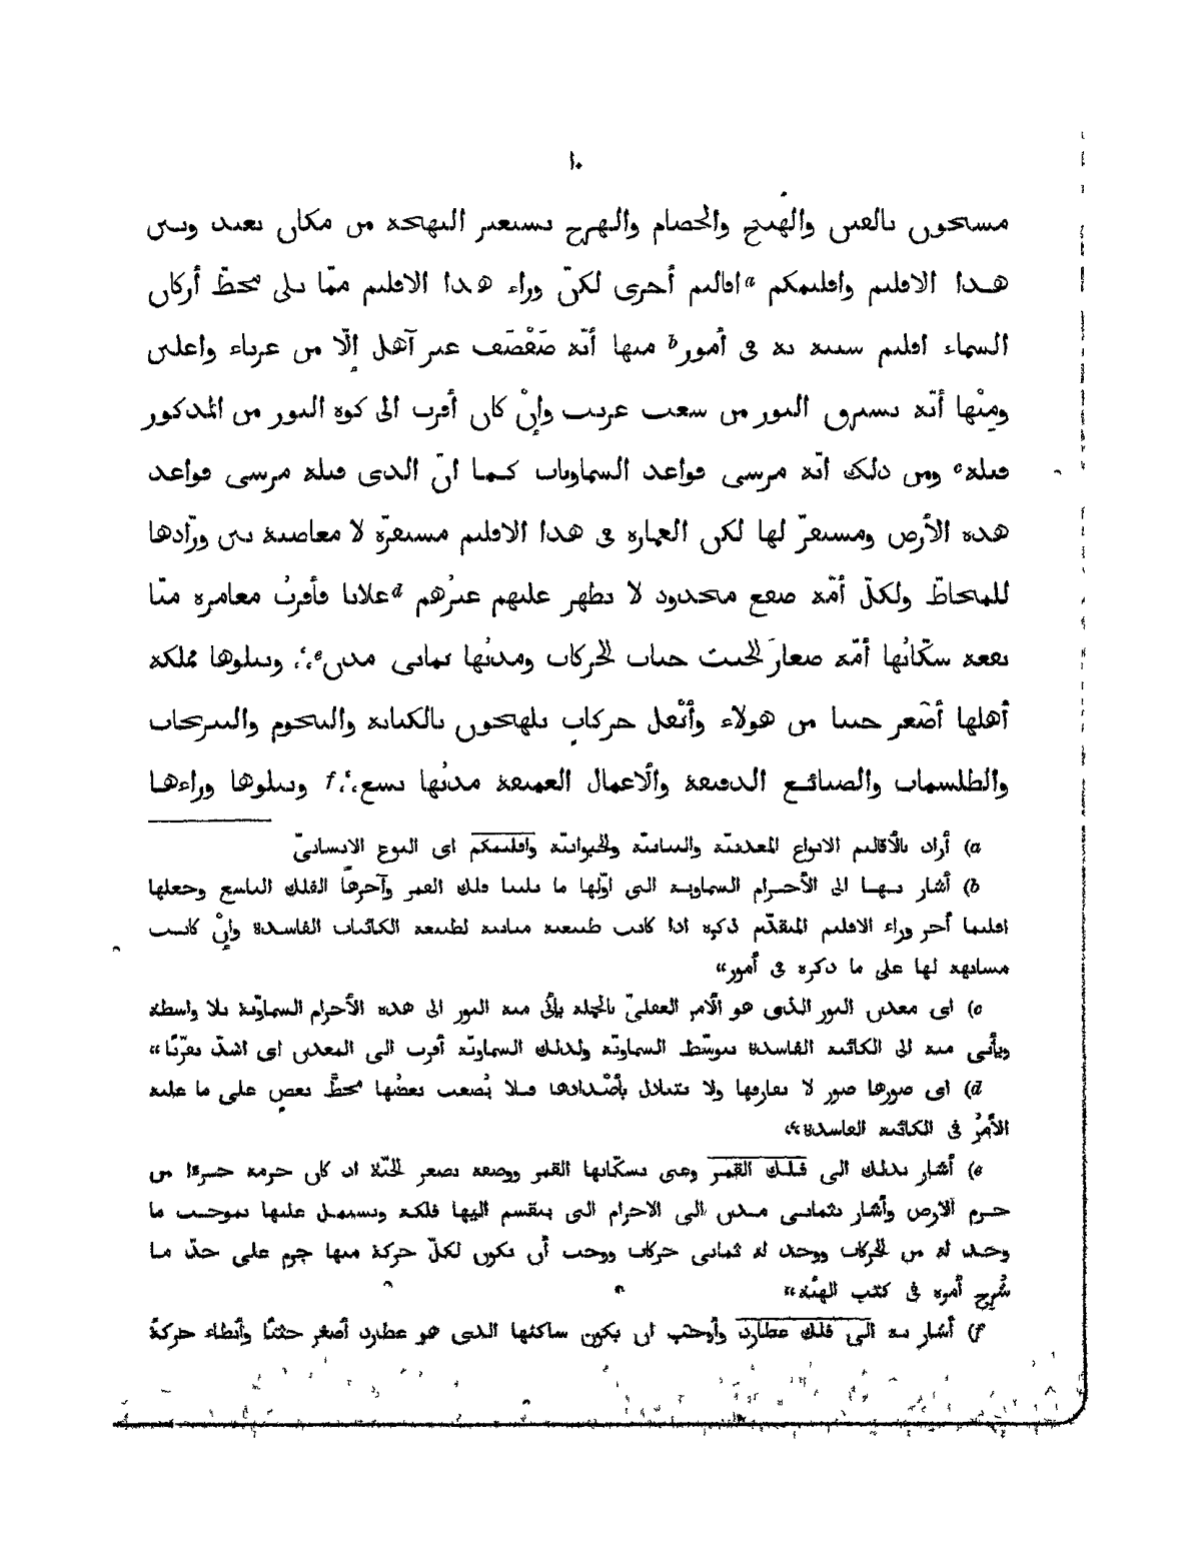 ١٠
مسحون بالفتن والهيج والخصام والهرج يستعير البهجة من مكان بعيد وبين
هذا الاقليم واقليمكم a اقاليم أخرى لكنّ وراء هذا الاقليم ممّا يلى محطّ أركان
السماء اقليم شبيه به فى أمور b منها أنّه صَفْصَف غير آهل إلّا من غرباء واغلين
ومِنْها أنّه يسترق النور من شعب غريب وإِنْ كان أقرب الى كوة النور من المذكور
قبله c ومن ذلك انّه مرسى قواعد السماويات كما انّ الذى قبله مرسى قواعد
هذه الأرض ومستقرّ لها لكن العمارة فى هذا الاقليم مستقرّة لا مغاصبة بين ورّادها
للمحاطّ ولكلّ أمّة صقع محدود لا يظهر عليهم غيرُهم d غلابا فأقربُ معامره منّا
بقعة سكّانُها أمّة صغارَ الجثث حثاث الحركات ومدنُها ثمانى مدن e ؞ ويتلوها مملكة
أهلها أصغر جثثا من هولاء وأثْقل حركاتٍ يلهجون بالكتابة والنجوم والنيرنجات
والطلسمات والصنائع الدقيقة والاعمال العميقة مدنُها تسع ؞ f ويتلوها وراءها
a) أراد بالأقاليم الانواع المعدنيّة والنباتيّة والحيوانيّة واقليمكم اى النوع الانسانىّ
b) أشار بها الى الأجرام السماوية التى اوّلها ما يلينا فلك القمر وآخرها الفلك التاسع وجعلها
اقليما آخر وراء الاقليم المتقدّم ذكره اذا كانت طبيعته مباينة لطبيعة الكائنات الفاسدة وإِنْ كانت
مشابهة لها على ما ذكره فى أمور“
c) اى معدن النور الذى هو الأمر العقلىّ بالجملة يأتى منه النور الى هذه الأجرام السماويّة بلا واسطة
ويأتى منه الى الكائنة الفاسدة بتوسّط السماويّة ولذلك السماويّة أقرب الى المعدن اى اشدّ تقرّبًا“
d) اى صورها صور لا تفارقها ولا تتبادل بأضْدادها فلا يُصعب بعضُها محطَّ بعضٍ على ما عليه
الأمرُ فى الكائنة الفاسدة“
e) أشار بذلك الى فلك القمر وعنى بسكّانها القمر ووصفه بصغر الجثّة اذ كان جرمه جزءًا من
جرم الارض وأشار بثمانى مدن الى الاجرام التى ينقسم اليها فلكه ويشتمل عليها بموجب ما
وجد له من الحركات ووجد له ثمانى حركات ووجب أن يكون لكلّ حركة منها جرم على حدّ ما
شُرِح أمره فى كتب الهيئة“
f) أشار به الى فلك عطارد وأوجب ان يكون ساكنها الذى هو عطارد أصغر جثثًا وأبطاء حركةً